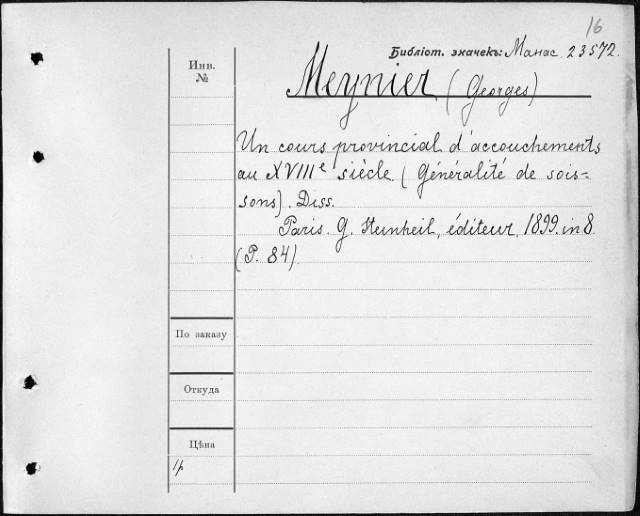 16
Библіот. значекъ: Манас. 23572.
Инв.
№
Meynier (Georges)
Un cours provincial d'accouchements
au XVIIIe siècle. (Généralité de sois-
sons). Diss.
Paris. G. Steinheil, éditeur, 1899. in 8
(P. 84).
По заказу
Откуда
Цѣна
1р